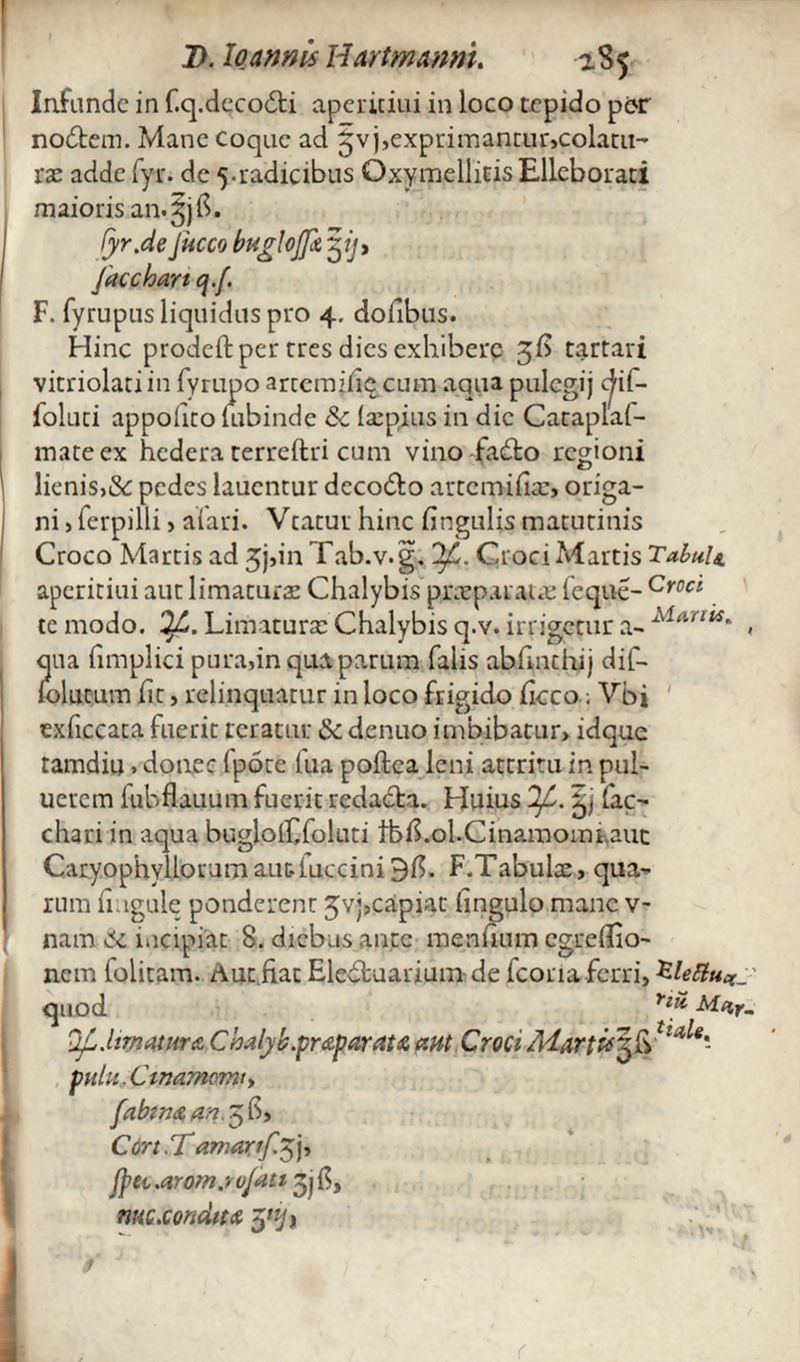 D. Ioannis Hartmanni. 285
Infunde in ſ.q.decocti aperitiui in loco tepido per
noctem. Mane coque ad ℥vj,exprimantur,colatu-
ræ adde ſyr. de 5.radicibus Oxymellitis Elleborati
maioris an.℥jß.
ſyr.de ſucco bugloſſæ ℥ij,
ſacchari q.ſ.
F. ſyrupus liquidus pro 4. doſibus.
Hinc prodeſt per tres dies exhibere ʒß tartari
vitriolati in ſyrupo artemiſię cum aqua pulegij diſ-
ſoluti appoſito ſubinde & ſæpius in die Cataplaſ-
mate ex hedera terreſtri cum vino facto regioni
lienis,& pedes lauentur decocto artemiſiæ, origa-
ni, ſerpilli, aſari. Vtatur hinc ſingulis matutinis
Croco Martis ad ʒj,in Tab.v.g. ℞. Croci Martis Tabulæ
aperitiui aut limaturæ Chalybis præparatæ ſequē- Croci
te modo. ℞. Limaturæ Chalybis q.v. irrigetur a- Martis.
qua ſimplici pura,in qua parum ſalis abſinthij diſ-
ſolutum ſit, relinquatur in loco frigido ſicco: Vbi
exſiccata fuerit teratur & denuo imbibatur, idque
tamdiu, donec ſpōte ſua poſtea leni attritu in pul-
uerem ſubflauum fuerit redacta. Huius ℞. ℥j ſac-
chari in aqua bugloſſ,ſoluti ℔ß.ol.Cinamomi,aut
Caryophyllorum aut ſuccini ℈ß. F.Tabulæ, qua-
rum ſingulę ponderent ʒvj,capiat ſingulo mane v-
nam & incipiat 8. diebus ante menſium egreſſio-
nem ſolitam. Aut fiat Electuarium de ſcoria ferri, Electua-
quod riū Mar-
℞.limaturæ Chalyb.præparatæ aut Croci Martis ℥ß tiale.
pulu.Cinamomi,
ſabinæ an ʒß,
Cort.Tamariſ.ʒj,
ſpec.arom.roſati ʒjß,
nuc.condita ʒiij,